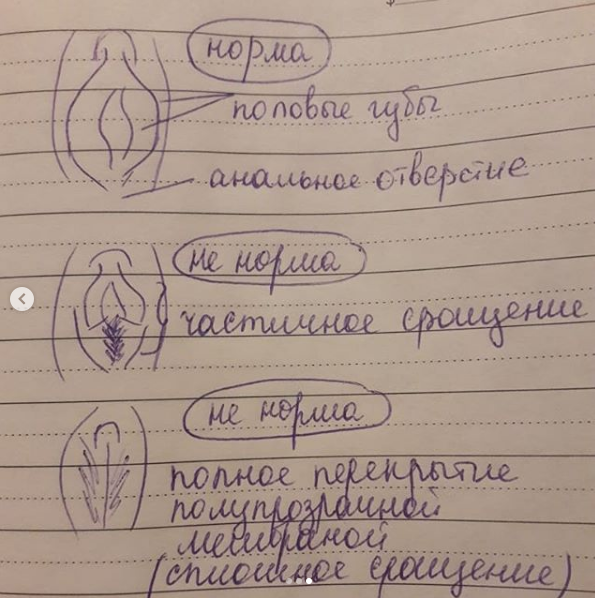 норма
половые губы
анальное отверстие
не норма
частичное сращение
не норма
полное перекрытие
полупрозрачной
мембраной
(сплошное сращение)